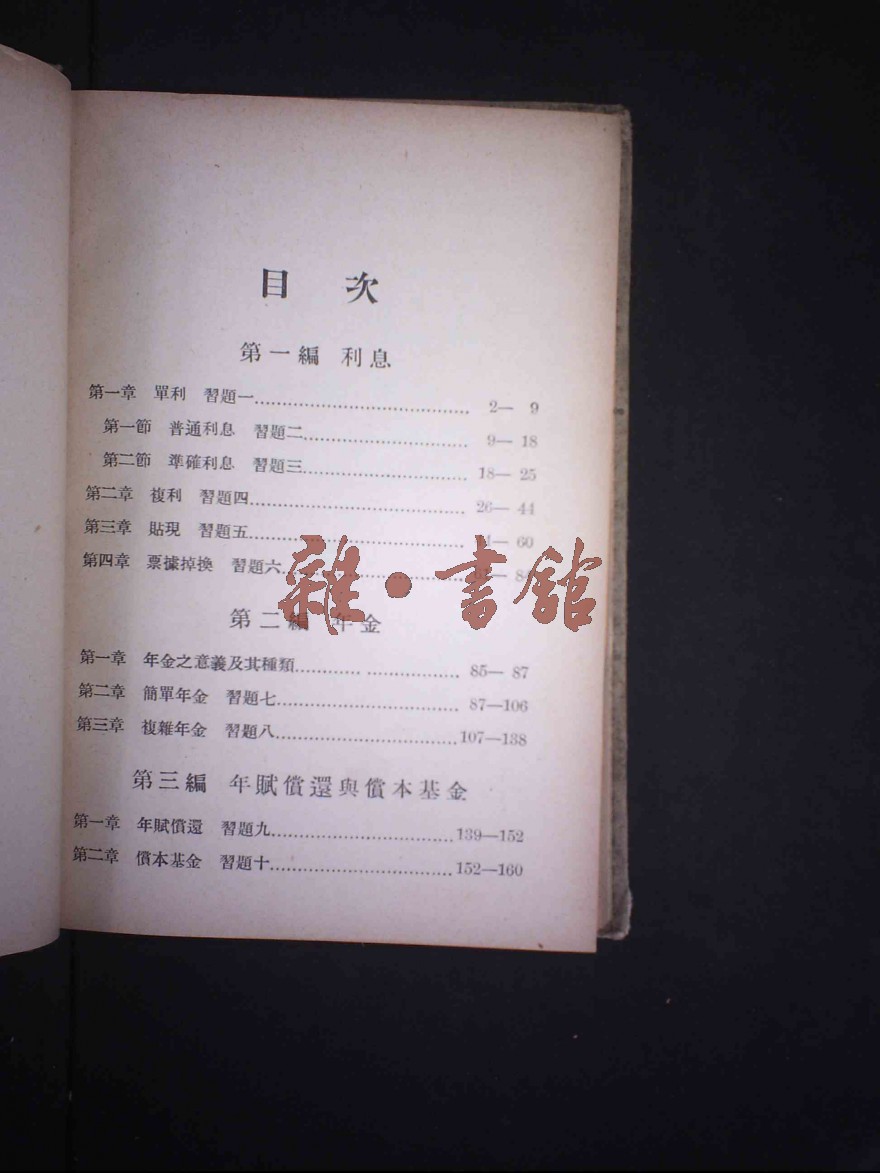 目 次
第一編 利息
第一章 單利 習題一 2— 9
第一節 普通利息 習題二 9— 18
第二節 準確利息 習題三 18— 25
第二章 複利 習題四 26— 44
第三章 貼現 習題五 — 60
第四章 票據掉換 習題六
雜·書館
第二編 年金
第一章 年金之意義及其種類 85— 87
第二章 簡單年金 習題七 87—106
第三章 複雜年金 習題八 107—138
第三編 年賦償還與償本基金
第一章 年賦償還 習題九 139—152
第二章 償本基金 習題十 152—160